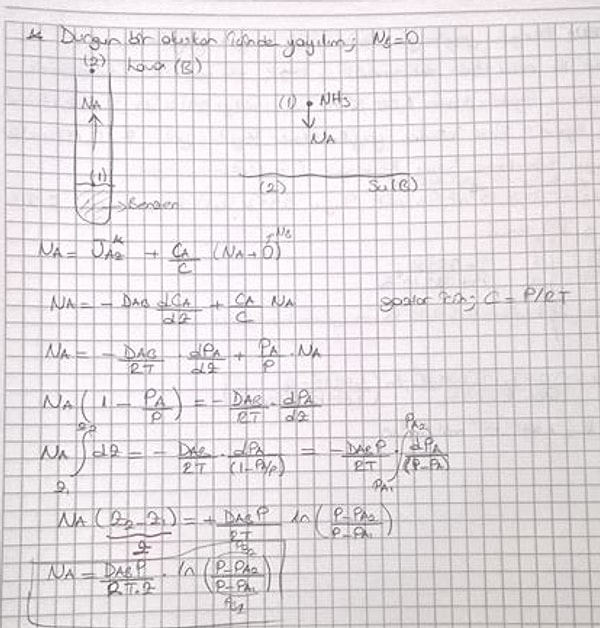 * Durgun bir akışkan içinde yayılım; N_B=0
(2) hava (B)
NA
(1) NH3
NA
(1)
(2) Su(B)
Benzen
NA = J*_Az + CA/C (NA + 0) N_B
NA = - DAB dCA/dz + CA/C NA
gazlar için; C = P/RT
NA = - DAB/RT . dPA/dz + PA/P . NA
NA (1 - PA/P) = - DAB/RT . dPA/dz
NA ∫_{z1}^{z2} dz = - DAB/RT . dPA/(1-PA/P) = - DAB P/RT ∫_{PA1}^{PA2} dPA/(P-PA)
NA (z2-z1) = + DAB P/RT ln (P-PA2/P-PA1)
z
NA = DAB P/RT.z . ln (P-PA2/P-PA1)